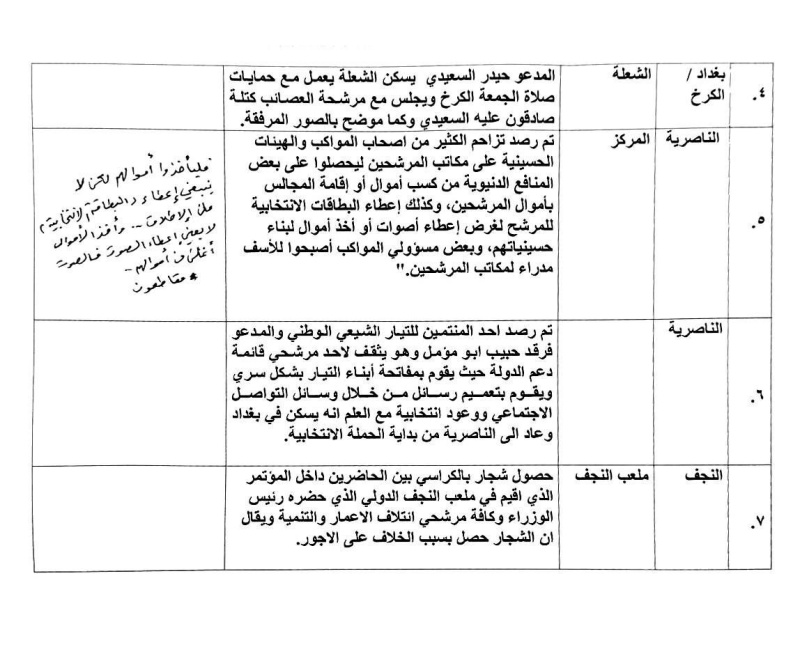 ٤.
بغداد / الكرخ
الشعلة
المدعو حيدر السعيدي يسكن الشعلة يعمل مع حمايات
صلاة الجمعة الكرخ ويجلس مع مرشحة العصائب كتلة
صادقون عليه السعيدي وكما موضح بالصور المرفقة.
٥.
الناصرية
المركز
تم رصد تزاحم الكثير من اصحاب المواكب والهيئات
الحسينية على مكاتب المرشحين ليحصلوا على بعض
المنافع الدنيوية من كسب أموال أو إقامة المجالس
بأموال المرشحين، وكذلك إعطاء البطاقات الانتخابية
للمرشح لغرض إعطاء أصوات أو أخذ أموال لبناء
حسينياتهم، وبعض مسؤولي المواكب أصبحوا للأسف
مدراء لمكاتب المرشحين."
فليأخذوا أموالهم لكن لا
ينبغي إعطاء البطاقة الانتخابية
على الإطلاق .. وأخذ الأموال
لا يعني إعطاء الصوت فالصوت
أغلى من أموالهم ..
* مقاطعون
٦.
الناصرية
تم رصد احد المنتمين للتيار الشيعي الوطني والمدعو
فرقد حبيب ابو مؤمل وهو يثقف لاحد مرشحي قائمة
دعم الدولة حيث يقوم بمفاتحة أبناء التيار بشكل سري
ويقوم بتعميم رسائل من خلال وسائل التواصل
الاجتماعي ووعود انتخابية مع العلم انه يسكن في بغداد
وعاد الى الناصرية من بداية الحملة الانتخابية.
٧.
النجف
ملعب النجف
حصول شجار بالكراسي بين الحاضرين داخل المؤتمر
الذي اقيم في ملعب النجف الدولي الذي حضره رئيس
الوزراء وكافة مرشحي ائتلاف الاعمار والتنمية ويقال
ان الشجار حصل بسبب الخلاف على الاجور.